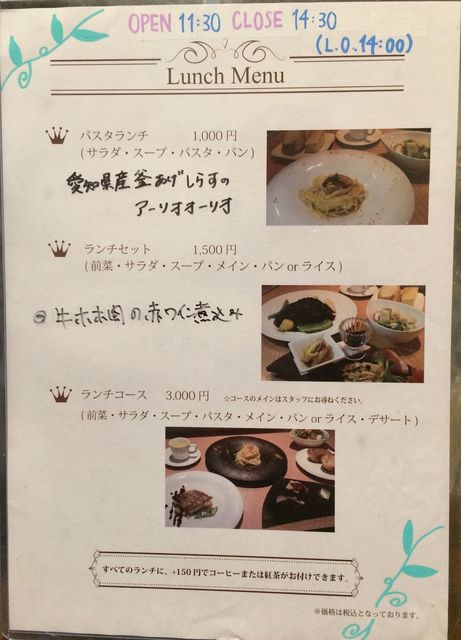 OPEN 11:30 CLOSE 14:30
(L.O.14:00)
Lunch Menu
パスタランチ 1,000円
(サラダ・スープ・パスタ・パン)
愛知県産釜あげしらすの
アーリオオーリオ
ランチセット 1,500円
(前菜・サラダ・スープ・メイン・パン or ライス)
牛ホホ肉の赤ワイン煮込み
ランチコース 3,000円 ☆コースのメインはスタッフにお尋ねください。
(前菜・サラダ・スープ・パスタ・メイン・パン or ライス・デザート)
すべてのランチに、+150円でコーヒーまたは紅茶がお付けできます。
※価格は税込となっております。